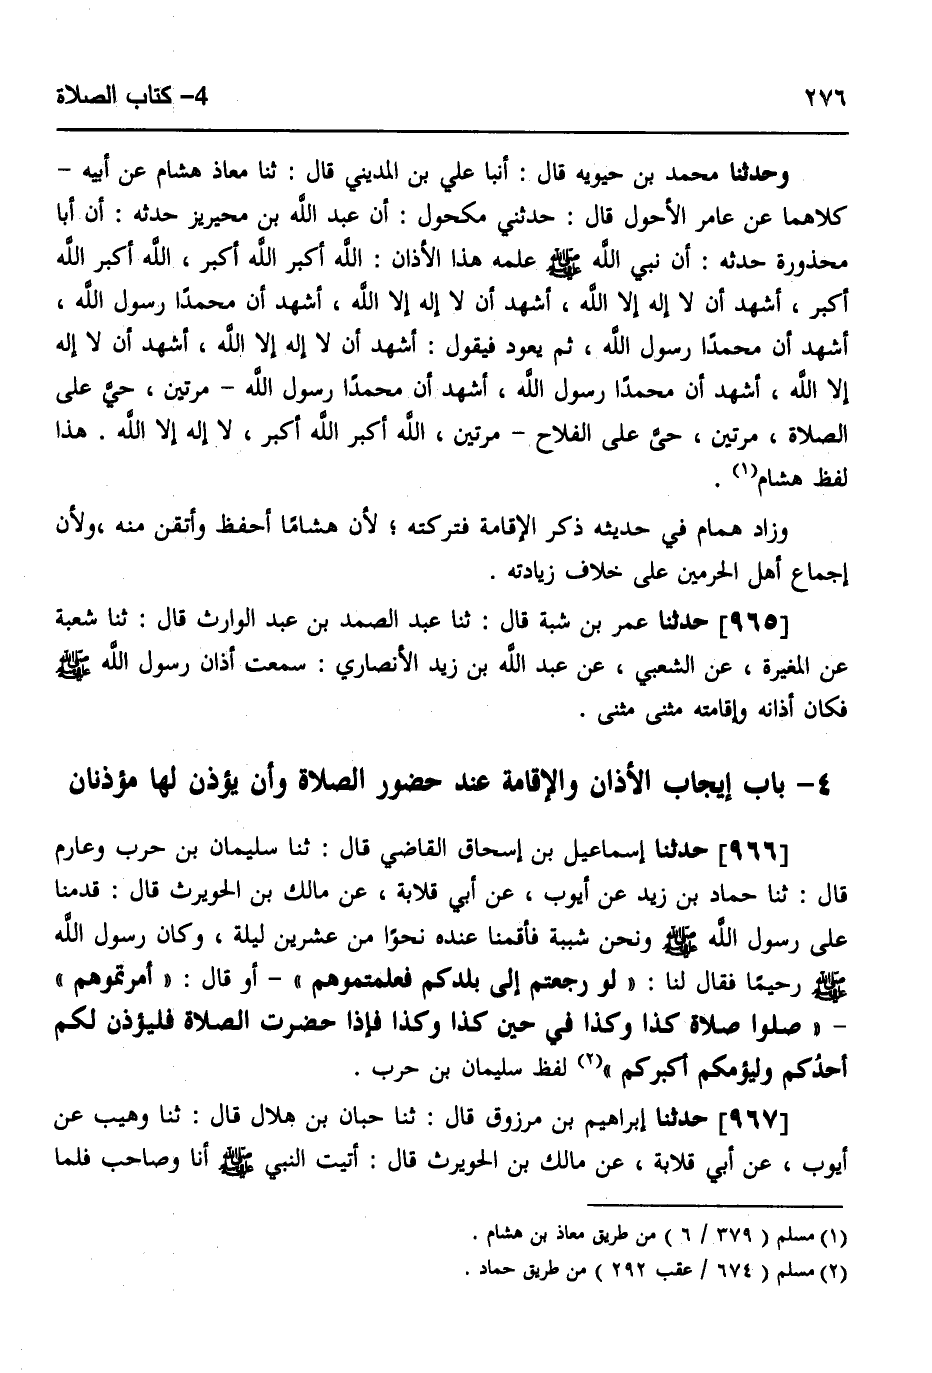 ٢٧٦
4- كتاب الصلاة
وحدثنا محمد بن حيويه قال : أنبا علي بن المديني قال : ثنا معاذ هشام عن أبيه –
كلاهما عن عامر الأحول قال : حدثني مكحول : أن عبد اللَّه بن محيريز حدثه : أن أبا
محذورة حدثه : أن نبي اللَّه ﷺ علمه هذا الأذان : اللَّه أكبر اللَّه أكبر ، اللَّه أكبر اللَّه
أكبر ، أشهد أن لا إله إلا اللَّه ، أشهد أن لا إله إلا اللَّه ، أشهد أن محمدًا رسول اللَّه ،
أشهد أن محمدًا رسول اللَّه ، ثم يعود فيقول : أشهد أن لا إله إلا اللَّه ، أشهد أن لا إله
إلا اللَّه ، أشهد أن محمدًا رسول اللَّه ، أشهد أن محمدًا رسول اللَّه – مرتين ، حيَّ على
الصلاة ، مرتين ، حيَّ على الفلاح – مرتين ، اللَّه أكبر اللَّه أكبر ، لا إله إلا اللَّه . هذا
لفظ هشام(١) .
وزاد همام في حديثه ذكر الإقامة فتركته ؛ لأن هشامًا أحفظ وأتقن منه ،ولأن
إجماع أهل الحرمين على خلاف زيادته .
[٩٦٥] حدثنا عمر بن شبة قال : ثنا عبد الصمد بن عبد الوارث قال : ثنا شعبة
عن المغيرة ، عن الشعبي ، عن عبد اللَّه بن زيد الأنصاري : سمعت أذان رسول اللَّه ﷺ
فكان أذانه وإقامته مثنى مثنى .
٤- باب إيجاب الأذان والإقامة عند حضور الصلاة وأن يؤذن لها مؤذنان
[٩٦٦] حدثنا إسماعيل بن إسحاق القاضي قال : ثنا سليمان بن حرب وعارم
قال : ثنا حماد بن زيد عن أيوب ، عن أبي قلابة ، عن مالك بن الحويرث قال : قدمنا
على رسول اللَّه ﷺ ونحن شببة فأقمنا عنده نحوًا من عشرين ليلة ، وكان رسول اللَّه
ﷺ رحيمًا فقال لنا : « لو رجعتم إلى بلدكم فعلمتموهم » – أو قال : « أمرتموهم »
– « صلوا صلاة كذا وكذا في حين كذا وكذا فإذا حضرت الصلاة فليؤذن لكم
أحدُكم وليؤمكم أكبركم »(٢) لفظ سليمان بن حرب .
[٩٦٧] حدثنا إبراهيم بن مرزوق قال : ثنا حبان بن هلال قال : ثنا وهيب عن
أيوب ، عن أبي قلابة ، عن مالك بن الحويرث قال : أتيت النبي ﷺ أنا وصاحب فلما
(١) مسلم ( ٣٧٩ / ٦ ) من طريق معاذ بن هشام .
(٢) مسلم ( ٦٧٤ / عقب ٢٩٢ ) من طريق حماد .